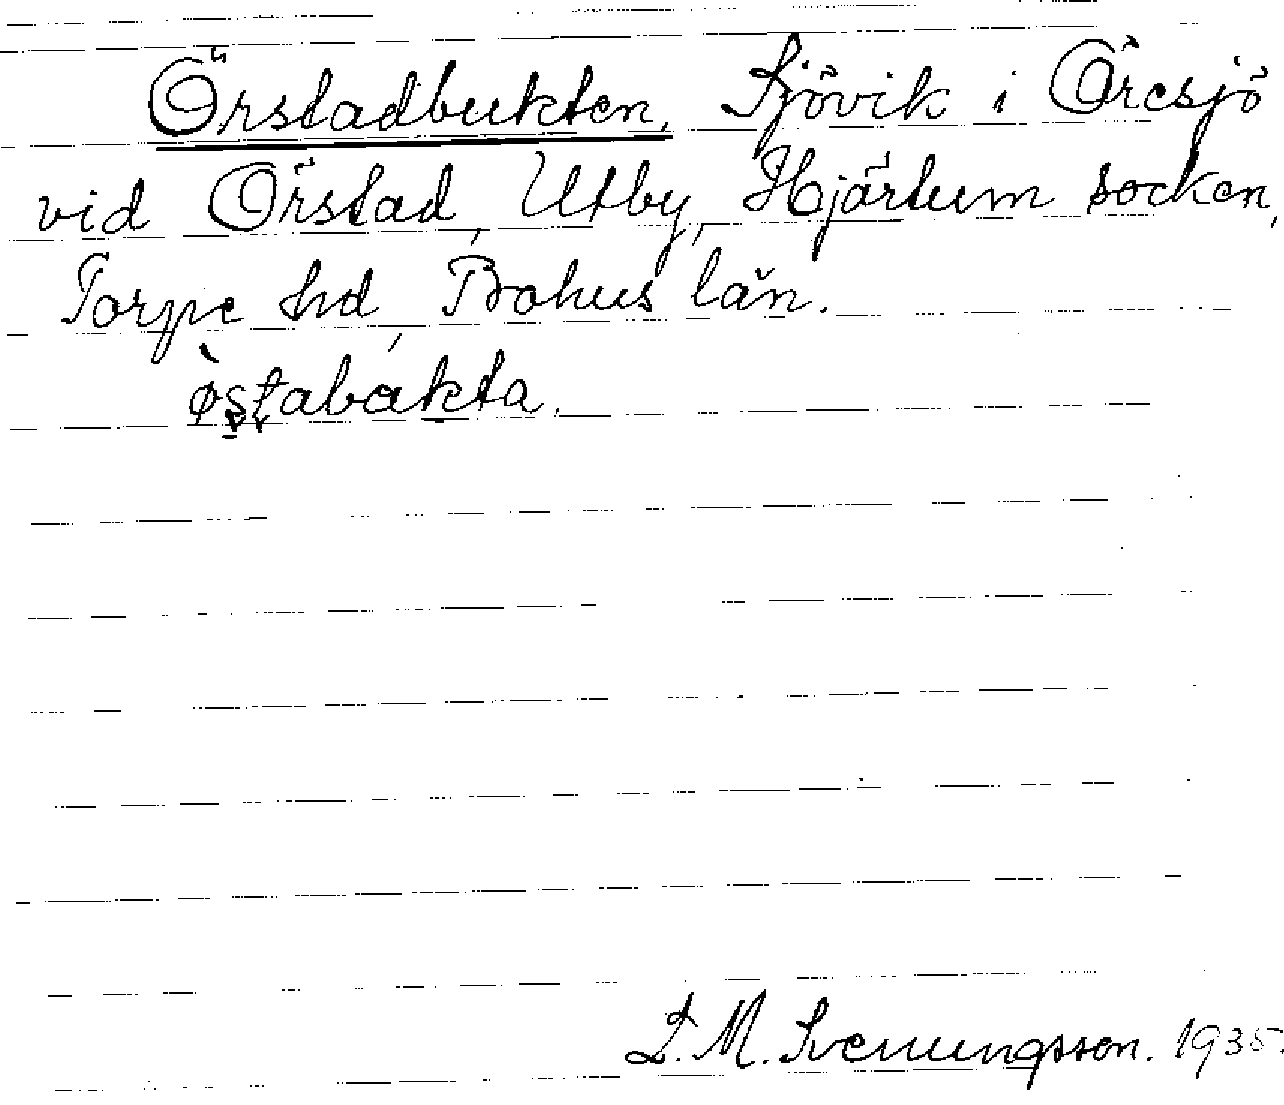 Örstadbukten, Sjövik i Öresjö
vid Örstad, Utby, Hjärtum socken,
Torpe hd, Bohus län.
ø̀stabákta.
L. M. Svenungsson. 1935.